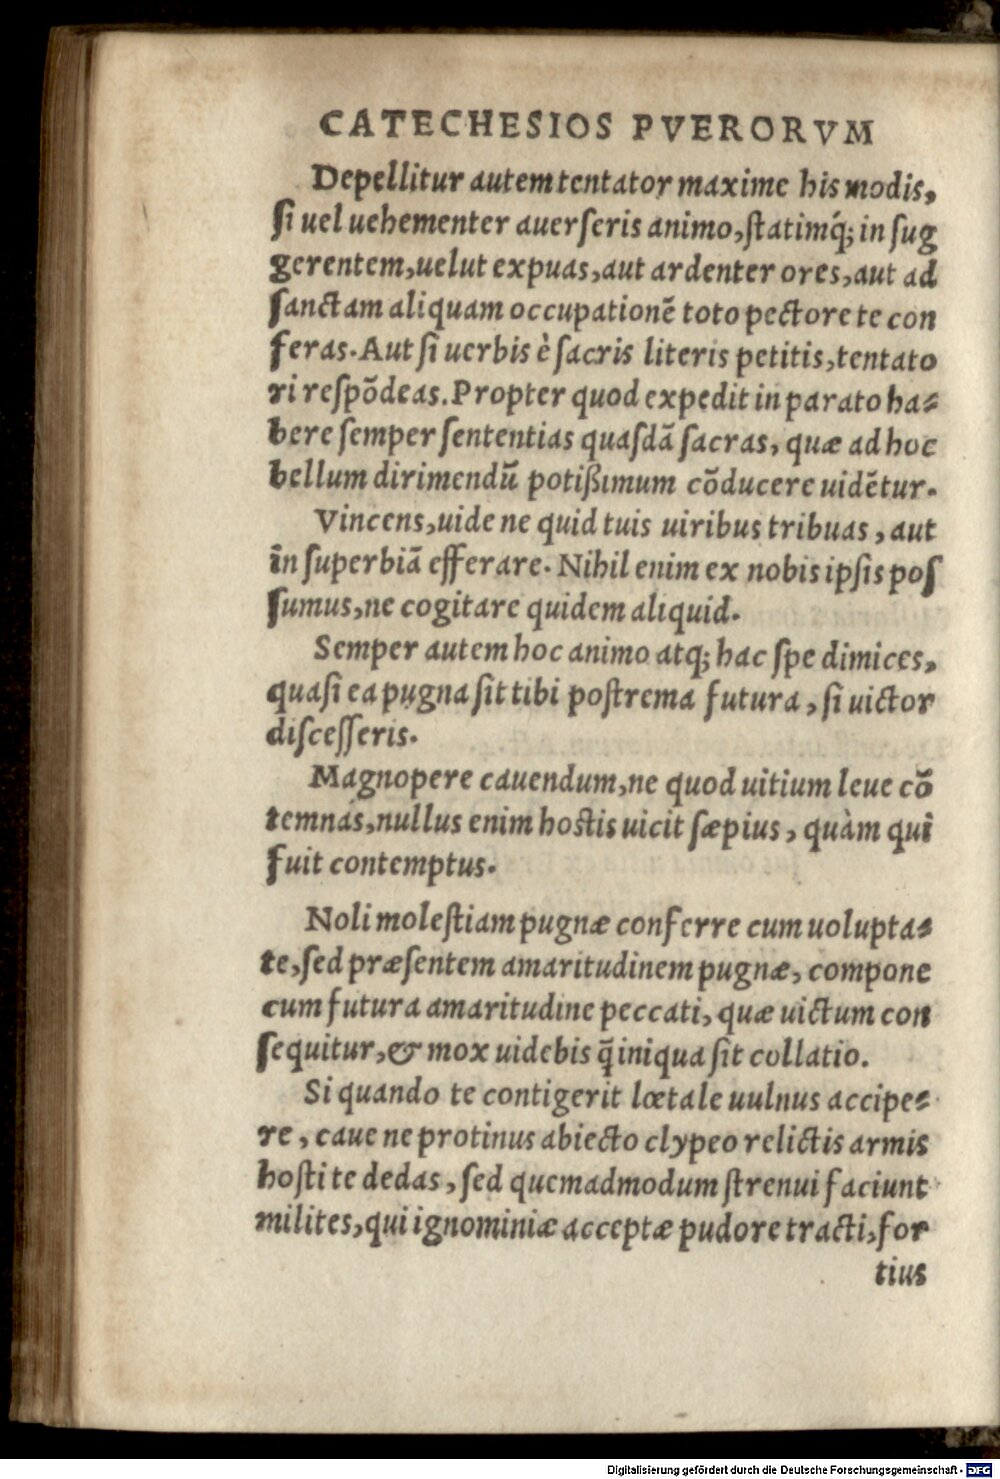 CATECHESIOS PVERORVM
Depellitur autem tentator maxime his modis,
ſi uel uehementer auerſeris animo, ſtatimq́; in ſug
gerentem, uelut expuas, aut ardenter ores, aut ad
ſanctam aliquam occupationẽ toto pectore te con
feras. Aut ſi uerbis è ſacris literis petitis, tentato
ri reſpõdeas. Propter quod expedit in parato ha⸗
bere ſemper ſententias quaſdã ſacras, quæ ad hoc
bellum dirimendũ potißimum cõducere uidẽtur.
Vincens, uide ne quid tuis uiribus tribuas, aut
in ſuperbiã efferare. Nihil enim ex nobis ipſis poſ
ſumus, ne cogitare quidem aliquid.
Semper autem hoc animo atq; hac ſpe dimices,
quaſi ea pugna ſit tibi poſtrema futura, ſi uictor
diſceſſeris.
Magnopere cauendum, ne quod uitium leue cõ
temnas, nullus enim hostis uicit ſæpius, quàm qui
fuit contemptus.
Noli moleſtiam pugnæ conferre cum uolupta⸗
te, ſed præſentem amaritudinem pugnæ, compone
cum futura amaritudine peccati, quæ uictum con
ſequitur, & mox uidebis q̃ iniqua ſit collatio.
Si quando te contigerit lœtale uulnus accipe⸗
re, caue ne protinus abiecto clypeo relictis armis
hoſti te dedas, ſed quemadmodum ſtrenui faciunt
milites, qui ignominiæ acceptæ pudore tracti, for
tius
Digitalisierung gefördert durch die Deutsche Forschungsgemeinschaft - DFG